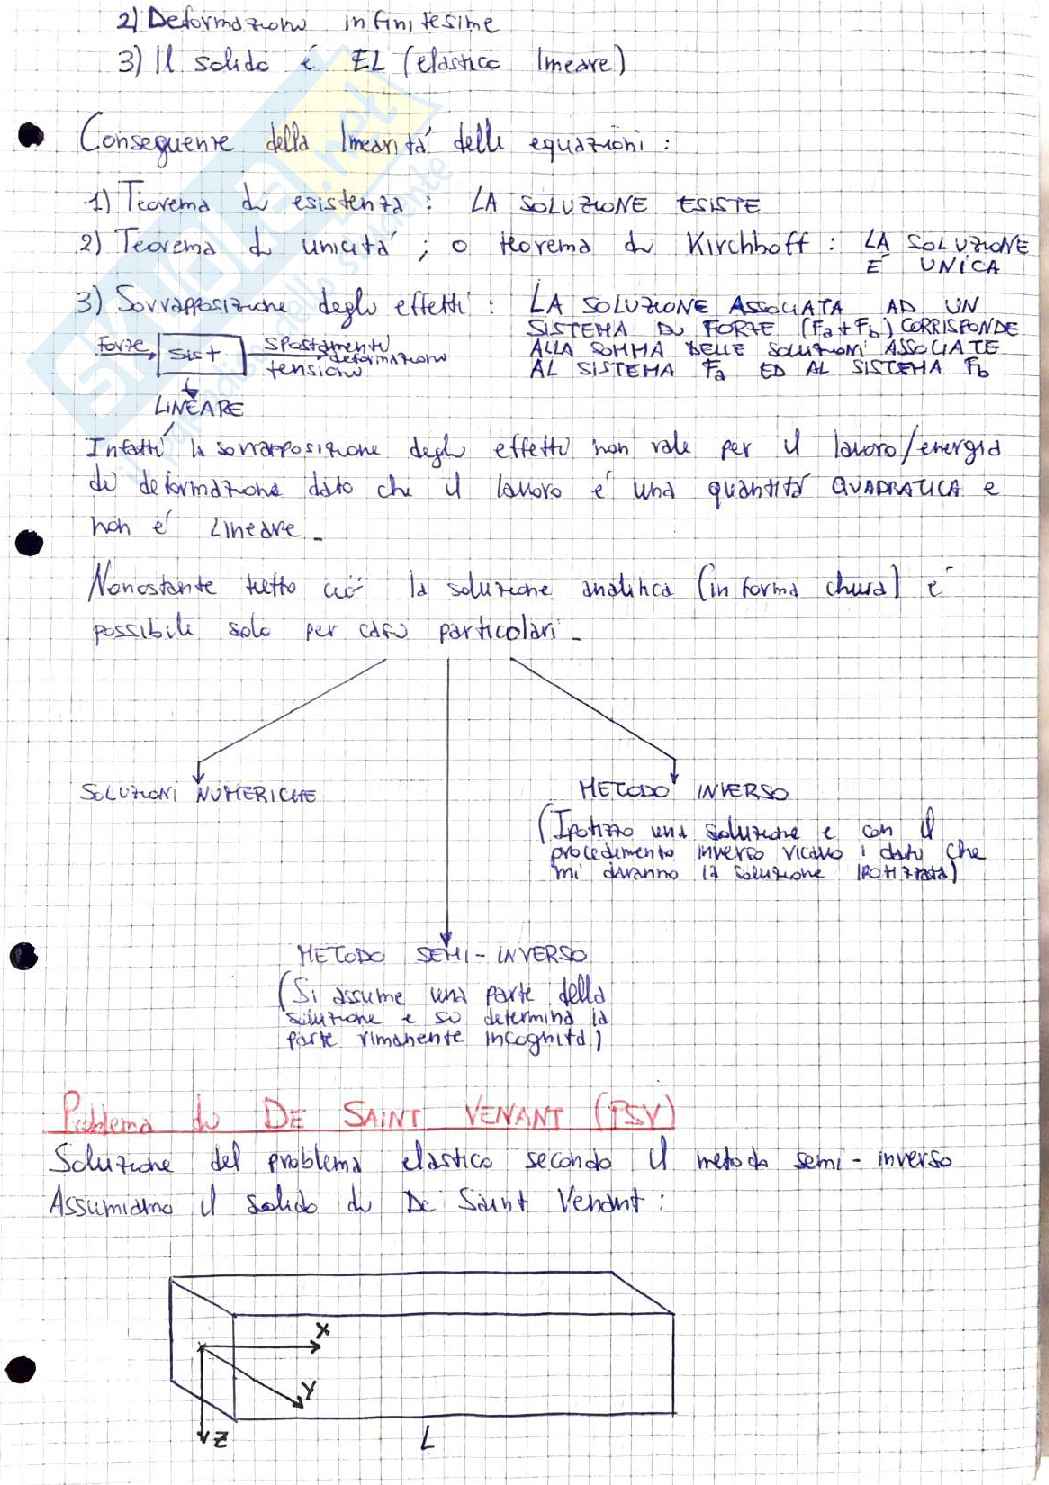 2) Deformazioni infinitesime
3) Il solido è EL (elastico lineare)
Conseguenze della linearità delle equazioni :
1) Teorema di esistenza : LA SOLUZIONE ESISTE
2) Teorema di unicità ; o teorema di Kirchhoff : LA SOLUZIONE
È UNICA
3) Sovrapposizione degli effetti : LA SOLUZIONE ASSOCIATA AD UN
SISTEMA DI FORZE (Fa+Fb) CORRISPONDE
ALLA SOMMA DELLE SOLUZIONI ASSOCIATE
AL SISTEMA Fa ED AL SISTEMA Fb
Forze Sist spostamento
deformazioni
tensioni
LINEARE
Infatti la sovrapposizione degli effetti non vale per il lavoro/energia
di deformazione dato che il lavoro è una quantità QUADRATICA e
non è Lineare.
Nonostante tutto ciò la soluzione analitica (in forma chiusa) è
possibile solo per casi particolari.
SOLUZIONI NUMERICHE
METODO INVERSO
(Ipotizzo una soluzione e con il
procedimento inverso ricavo i dati che
mi daranno la soluzione IPOTIZZATA)
METODO SEMI-INVERSO
(Si assume una parte della
soluzione e si determina la
parte rimanente incognita)
Problema di DE SAINT VENANT (PSV)
Soluzione del problema elastico secondo il metodo semi-inverso
Assumiamo il solido di De Saint Venant :
X
Y
Z
L
SKUOLA.net